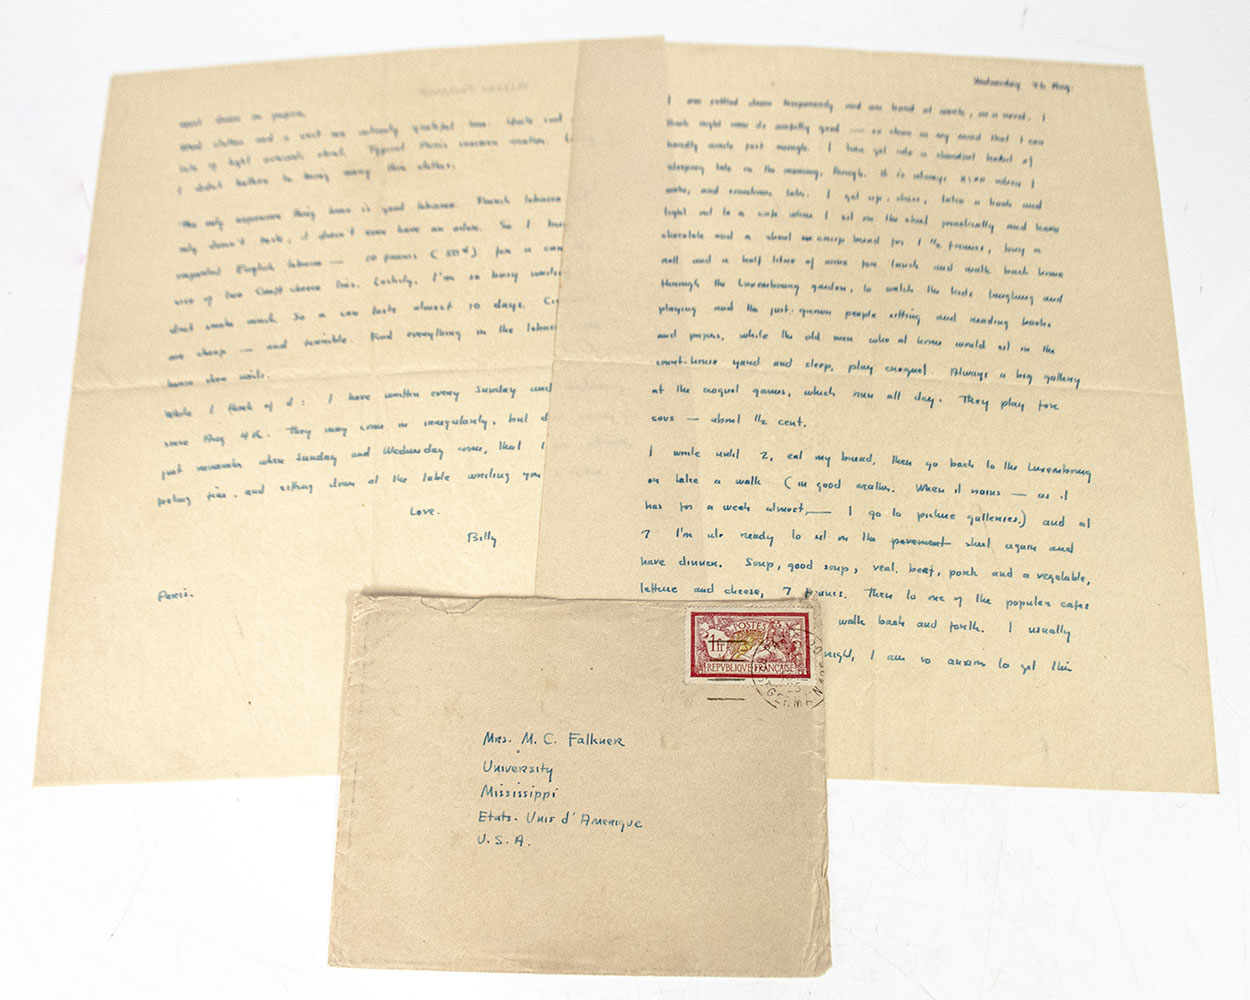 went down on purpose.
Wool clothes and a vest are actually grateful here.
lots of light overcoats about. Typical Paris summer weather.
I didn't bother to bring many thin clothes.
The only expensive thing here is good tobacco. French tobacco
only doesn't taste, it doesn't even have an odor. So I buy
imported English tobacco — 10 francs (50¢) for a can
size of two snuff boxes. Luckily, I'm so busy writing
don't smoke much. So a can lasts almost 10 days.
are cheap — and terrible. Find everything in the tobacco
horse shoe nails.
While I think of it: I have written every Sunday and
since Aug 4th. They may come in irregularly, but
just remember when Sunday and Wednesday come, that I
feeling fine, and sitting down at the table writing you
Love.
Billy
Paris.
Wednesday 26 Aug.
I am settled down temporarily and am hard at work, on a novel. I
think right now its awfully good — so clear in my mind that I can
hardly write fast enough. I have got into a scandalous habit of
sleeping late in the morning, though. It is always when I
wake, and sometimes late. I get up, dress, take a bath and
light out to a cafe where I sit on the street practically and have
chocolate and a crisp bread for 1 1/2 francs, buy a
roll and a half litre of wine for lunch and walk back home
through the Luxembourg garden, to watch the kids laughing and
playing and the just-grown people sitting and reading books
and papers, while the old men who at home would sit in the
court-house yard and sleep, play croquet. Always a big gallery
at the croquet games, which run all day. They play for
sous — about 1/2 cent.
I write until 2, eat my bread, then go back to the Luxembourg
or take a walk (in good weather. When it rains — as it
has for a week almost — I go to picture galleries.) and at
7 I'm ready to sit on the pavement street again and
have dinner. Soup, good soup, veal, beef, pork and a vegetable,
lettuce and cheese, 7 francs. Then to one of the popular cafes
walk back and forth. I usually
night, I am so anxious to get this
POSTES
1 fr
REPUBLIQUE FRANÇAISE
ST GERMAIN
Mrs. M. C. Falkner
University
Mississippi
Etats-Unis d'Amerique
U. S. A.